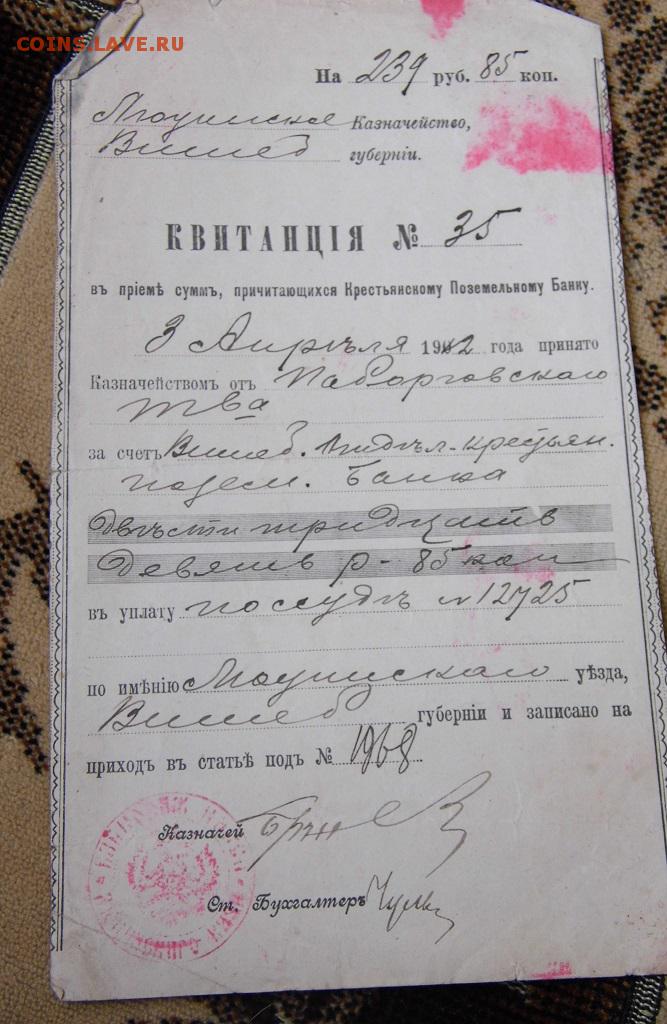 COINS.LAVE.RU
На 239 руб. 85 коп.
Люцинское Казначейство,
Витеб губерніи.
КВИТАНЦІЯ № 35
въ пріемѣ суммъ, причитающихся Крестьянскому Поземельному Банку.
3 Апрѣля 1912 года принято
Казначействомъ отъ
тва
за счетъ Витеб. Отдѣл. крестьян.
позем. банка
Двѣсти тридцать
девять р - 85 коп
въ уплату по ссудѣ № 12725
по имѣнію Люцинскаго уѣзда,
Витеб губерніи и записано на
приходъ въ статьѣ подъ № 1968.
Казначей
Ст. Бухгалтеръ